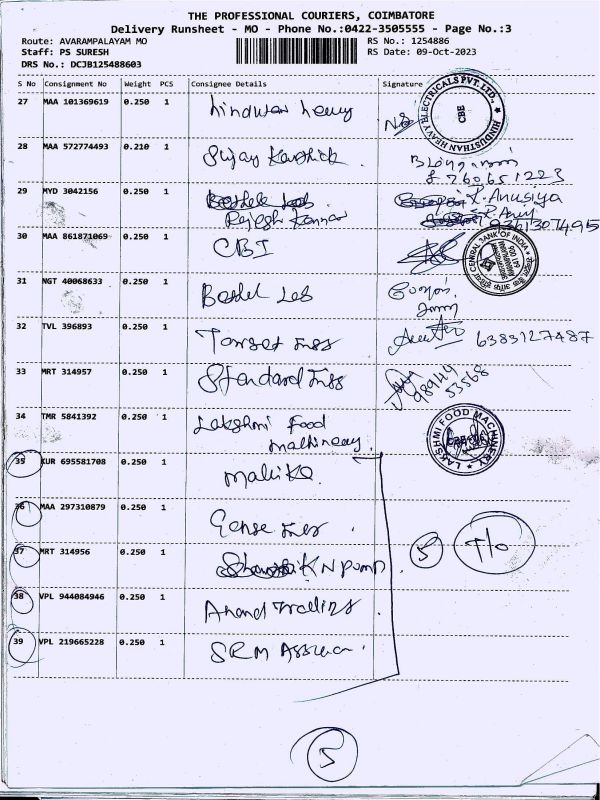 THE PROFESSIONAL COURIERS, COIMBATORE
Delivery Runsheet - MO - Phone No.:0422-3505555 - Page No.:3
Route: AVARAMPALAYAM MO
RS No.: 1254886
Staff: PS SURESH
RS Date: 09-Oct-2023
DRS No.: DCJB125488603
S No Consignment No Weight PCS Consignee Details Signature
27 MAA 101369619 0.250 1 hindustan heavy
HINDUSTHAN HEAVY ELECTRICALS PVT. LTD.,
CBE
28 MAA 572774493 0.210 1 Sujay Karthick
29 MYD 3042156 0.250 1 Rajesh Kannan
R. Anusiya
9361307495
30 MAA 861871069 0.250 1 CBI
CENTRAL BANK OF INDIA
31 NGT 40068633 0.250 1 Bethel Lab
32 TVL 396893 0.250 1 Target Inss
6383127487
33 MRT 314957 0.250 1 Standard Inss
98944
53568
34 TMR 5841392 0.250 1 Lakshmi Food
Machinery
LAKSHMI FOOD MACHINERY
35 KUR 695581708 0.250 1 Makika
36 MAA 297310879 0.250 1
37 MRT 314956 0.250 1 K N Pump
5 T/o
38 VPL 944084946 0.250 1 Anand Trading
39 VPL 219665228 0.250 1 SRM
5